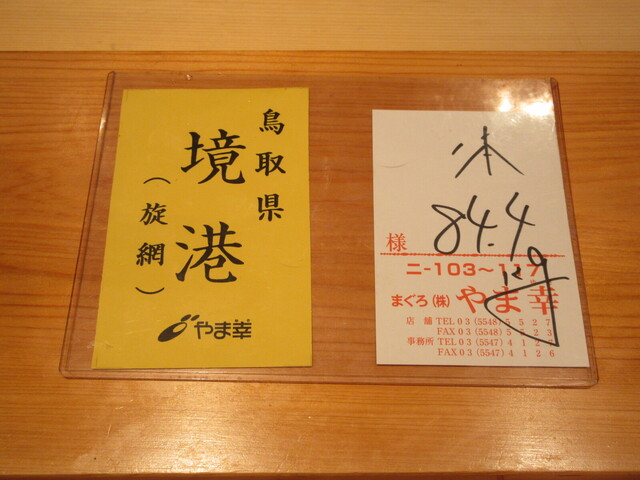 鳥取県
境港
(旋網)
やま幸
84.4
様
ニ-103~117
まぐろ(株)やま幸
店舗 TEL 03 (5548) 5 5 2 7
FAX 03 (5548) 5 5 2 3
事務所 TEL 03 (5547) 4 1 2
FAX 03 (5547) 4 1 2 6